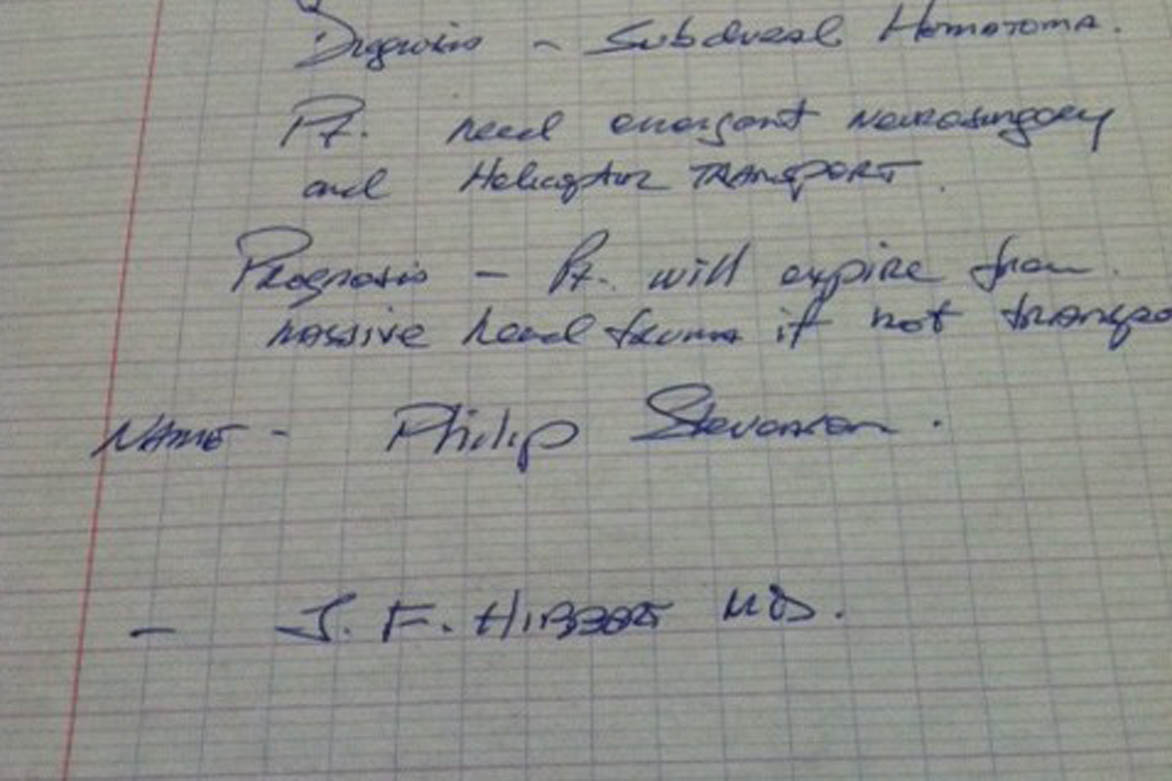 Diagnosis - Subdural Hematoma.
Pt. need emergent neurosurgery
and Helicopter TRANSPORT.
Prognosis - Pt. will expire from
massive head trauma if not transpo
NAME - Philip Stevenson.
- J. F. HIBBERT MD.